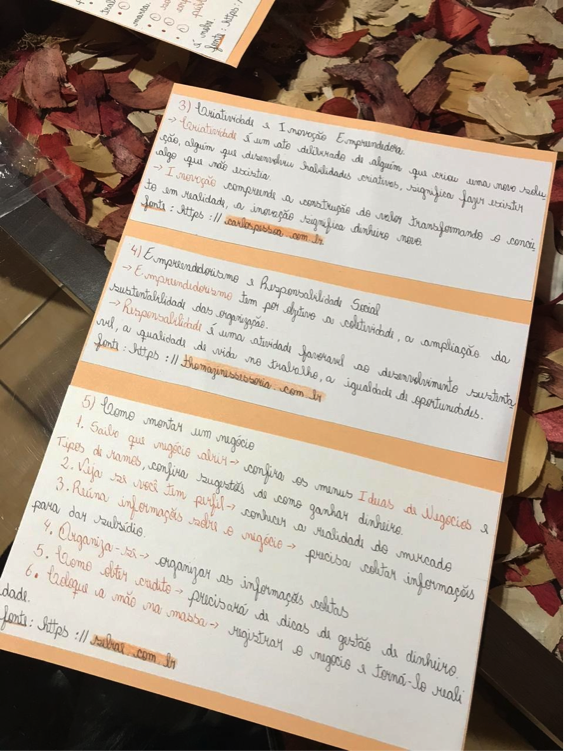 fonte: https://
3) Criatividade e Inovação Empreendedora
→ Criatividade é um ato deliberado de alguém que criou uma nova solu
ção, alguém que desenvolveu habilidades criativas, significa fazer existir
algo que não existia
→ Inovação compreende a construção do valor transformando o concei
to em realidade, a inovação significa dinheiro novo
fonte: https://carlospessoa.com.br
4) Empreendedorismo e Responsabilidade Social
→ Empreendedorismo tem por objetivo a coletividade, a ampliação da
sustentabilidade das organização.
→ Responsabilidade é uma atividade favorável ao desenvolvimento sustentá
vel, a qualidade de vida no trabalho, a igualdade de oportunidades.
fonte: https://thomazinessessoria.com.br
5) Como montar um negócio
1. Saiba que negócio abrir → confira os menus Ideas de Negócios e
Tipos de ramos, confira sugestões de como ganhar dinheiro.
2. Veja se você tem perfil → conhecer a realidade do mercado
3. Reúna informações sobre o negócio → precisa coletar informações
para dar subsídio.
4. Organiza-se → organizar as informações coletas
5. Como obter credito → precisará de dicas de gestão de dinheiro.
6. Coloque a mão na massa → registrar o negócio e torná-lo reali
dade.
fonte: https://sebrae.com.br